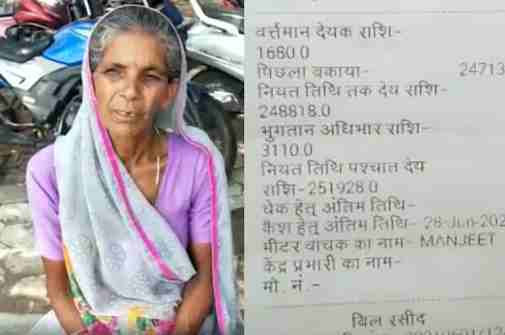 वर्त्तमान देयक राशि-
1680.0
पिछला बकाया- 24713
नियत तिथि तक देय राशि-
248818.0
भुगतान अधिभार राशि-
3110.0
नियत तिथि पश्चात देय
राशि-251928.0
चेक हेतू अंतिम तिथि-
कैश हेतू अंतिम तिथि- 28-Jun-202
मीटर वाचक का नाम- MANJEET
केंद्र प्रभारी का नाम-
मो. नं.-
बिल रसीद